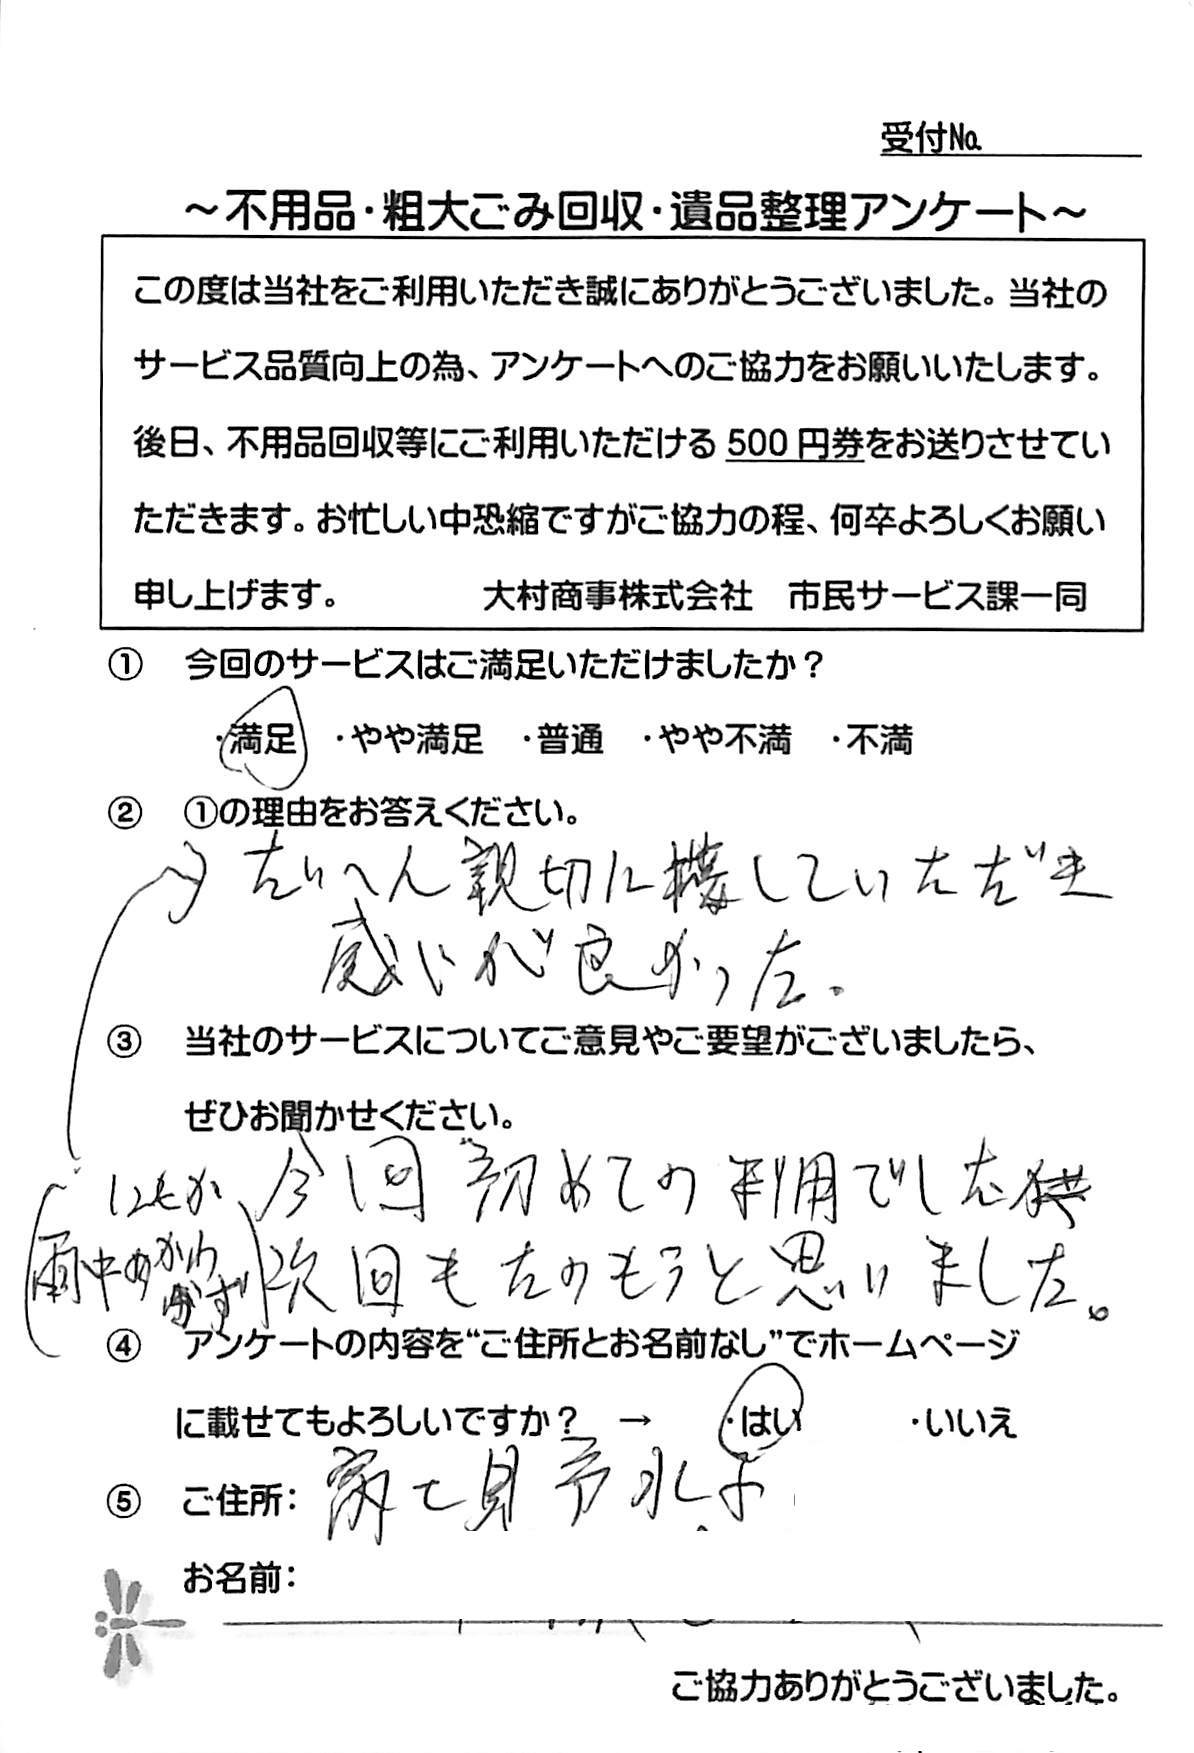 受付No.
～不用品・粗大ごみ回収・遺品整理アンケート～
この度は当社をご利用いただき誠にありがとうございました。当社の
サービス品質向上の為、アンケートへのご協力をお願いいたします。
後日、不用品回収等にご利用いただける 500 円券をお送りさせてい
ただきます。お忙しい中恐縮ですがご協力の程、何卒よろしくお願い
申し上げます。 大村商事株式会社 市民サービス課一同
① 今回のサービスはご満足いただけましたか？
・満足 ・やや満足 ・普通 ・やや不満 ・不満
② ①の理由をお答えください。
たいへん親切に接していただき
感じが良かった。
③ 当社のサービスについてご意見やご要望がございましたら、
ぜひお聞かせください。
今回初めての利用でした
次回もたのもうと思いました。
雨中にもかかわらず
④ アンケートの内容を“ご住所とお名前なし”でホームページ
に載せてもよろしいですか？ → ・はい ・いいえ
⑤ ご住所：富士見市水
お名前：
ご協力ありがとうございました。